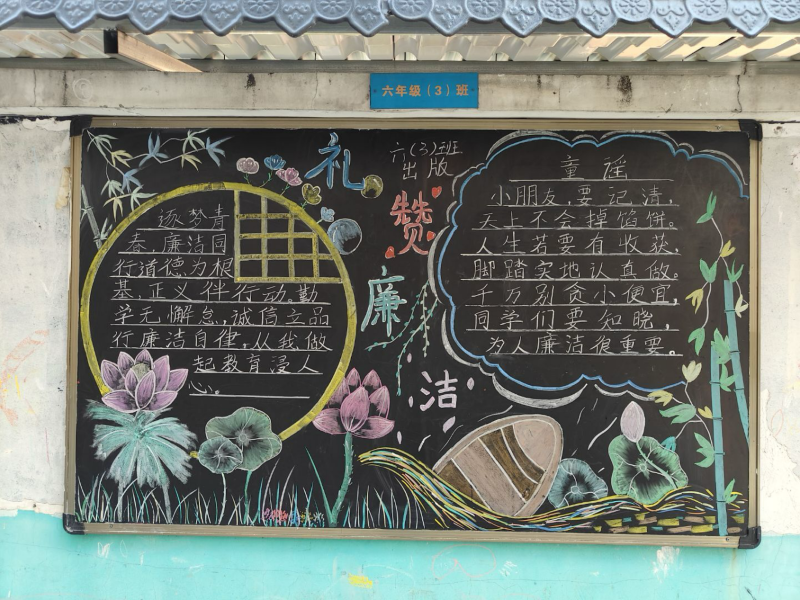 六年级（3）班
礼
赞
廉
洁
六(3)班
出版
逐梦青
春,廉洁同
行道德为根
基,正义伴行动。勤
学无懈怠,诚信立品
行廉洁自律,从我做
起教育浸人
心。
童谣
小朋友,要记清,
天上不会掉馅饼。
人生若要有收获,
脚踏实地认真做。
千万别贪小便宜,
同学们要知晓,
为人廉洁很重要。